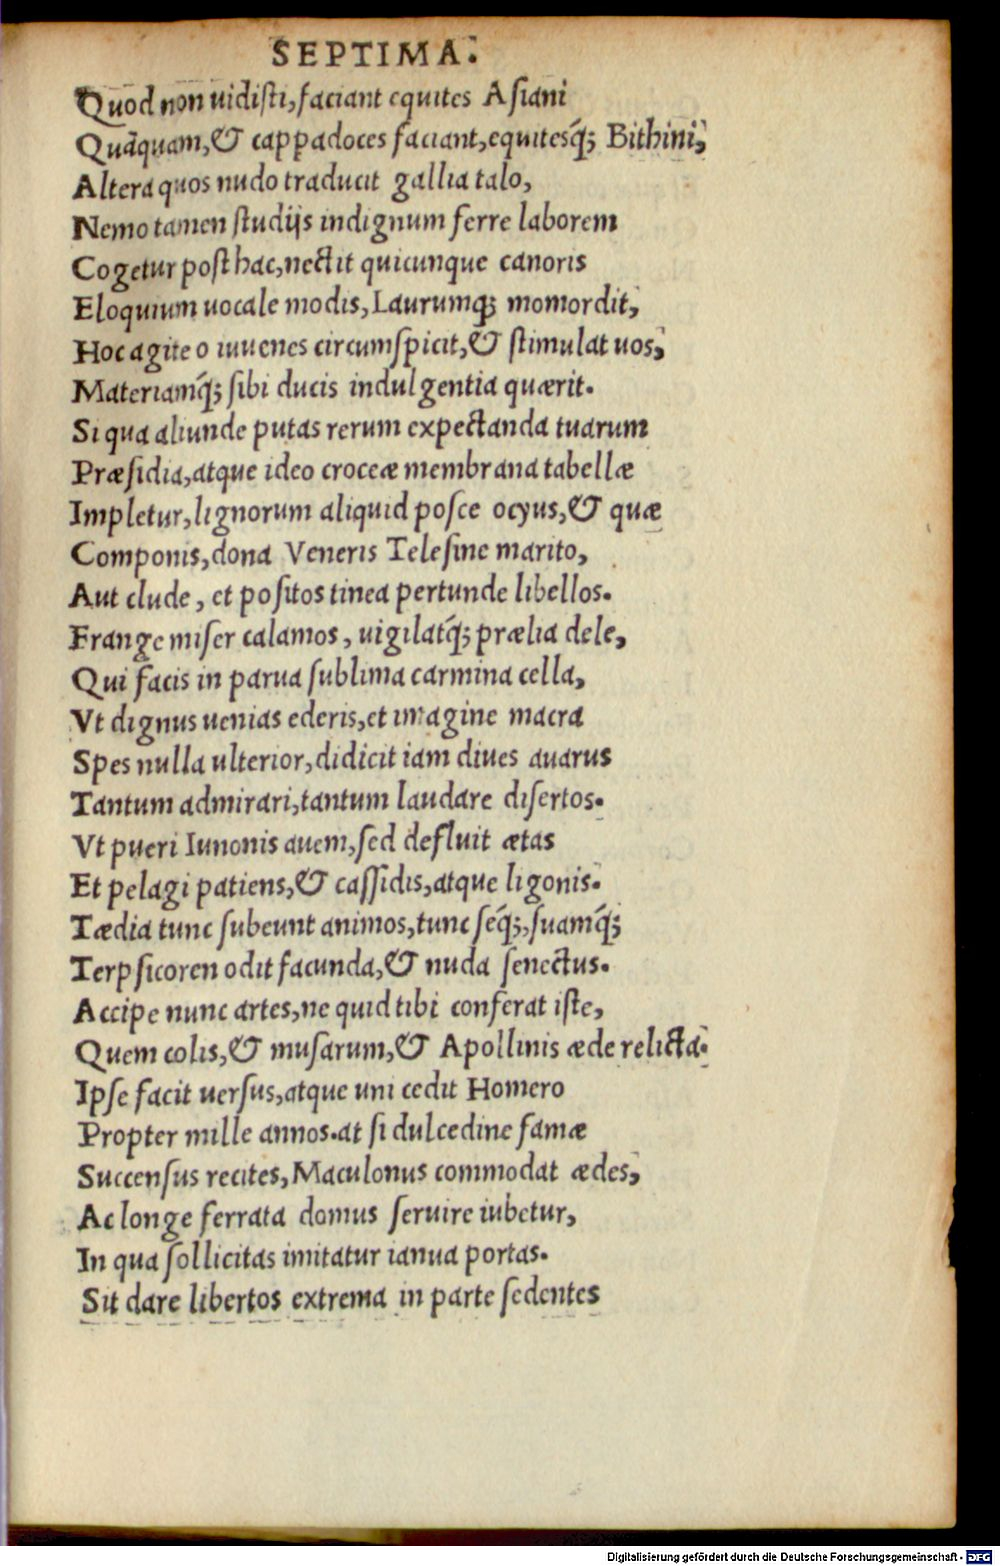 SEPTIMA.
Quod non uidisti, faciant equites Asiani
Quãquam, & cappadoces faciant, equitesq́; Bithini,
Altera quos nudo traducit gallia talo,
Nemo tamen studijs indignum ferre laborem
Cogetur post hac, nectit quicunque canoris
Eloquium uocale modis, Laurumq; momordit,
Hoc agite o iuuenes circumspicit, & stimulat uos,
Materiamq́; sibi ducis indulgentia quærit.
Si qua aliunde putas rerum expectanda tuarum
Præsidia, atque ideo croceæ membrana tabellæ
Impletur, lignorum aliquid posce ocyus, & quæ
Componis, dona Veneris Telesine marito,
Aut clude, et positos tinea pertunde libellos.
Frange miser calamos, uigilatq́; prælia dele,
Qui facis in parua sublima carmina cella,
Vt dignus uenias ederis, et imagine macra
Spes nulla ulterior, didicit iam diues auarus
Tantum admirari, tantum laudare disertos.
Vt pueri Iunonis auem, sed defluit ætas
Et pelagi patiens, & cassidis, atque ligonis.
Tædia tunc subeunt animos, tunc seq́;, suamq́;
Terpsicoren odit facunda, & nuda senectus.
Accipe nunc artes, ne quid tibi conferat iste,
Quem colis, & musarum, & Apollinis æde relicta.
Ipse facit uersus, atque uni cedit Homero
Propter mille annos. at si dulcedine famæ
Succensus recites, Maculonus commodat ædes,
Ac longe ferrata domus seruire iubetur,
In qua sollicitas imitatur ianua portas.
Sit dare libertos extrema in parte sedentes
Digitalisierung gefördert durch die Deutsche Forschungsgemeinschaft - DFG